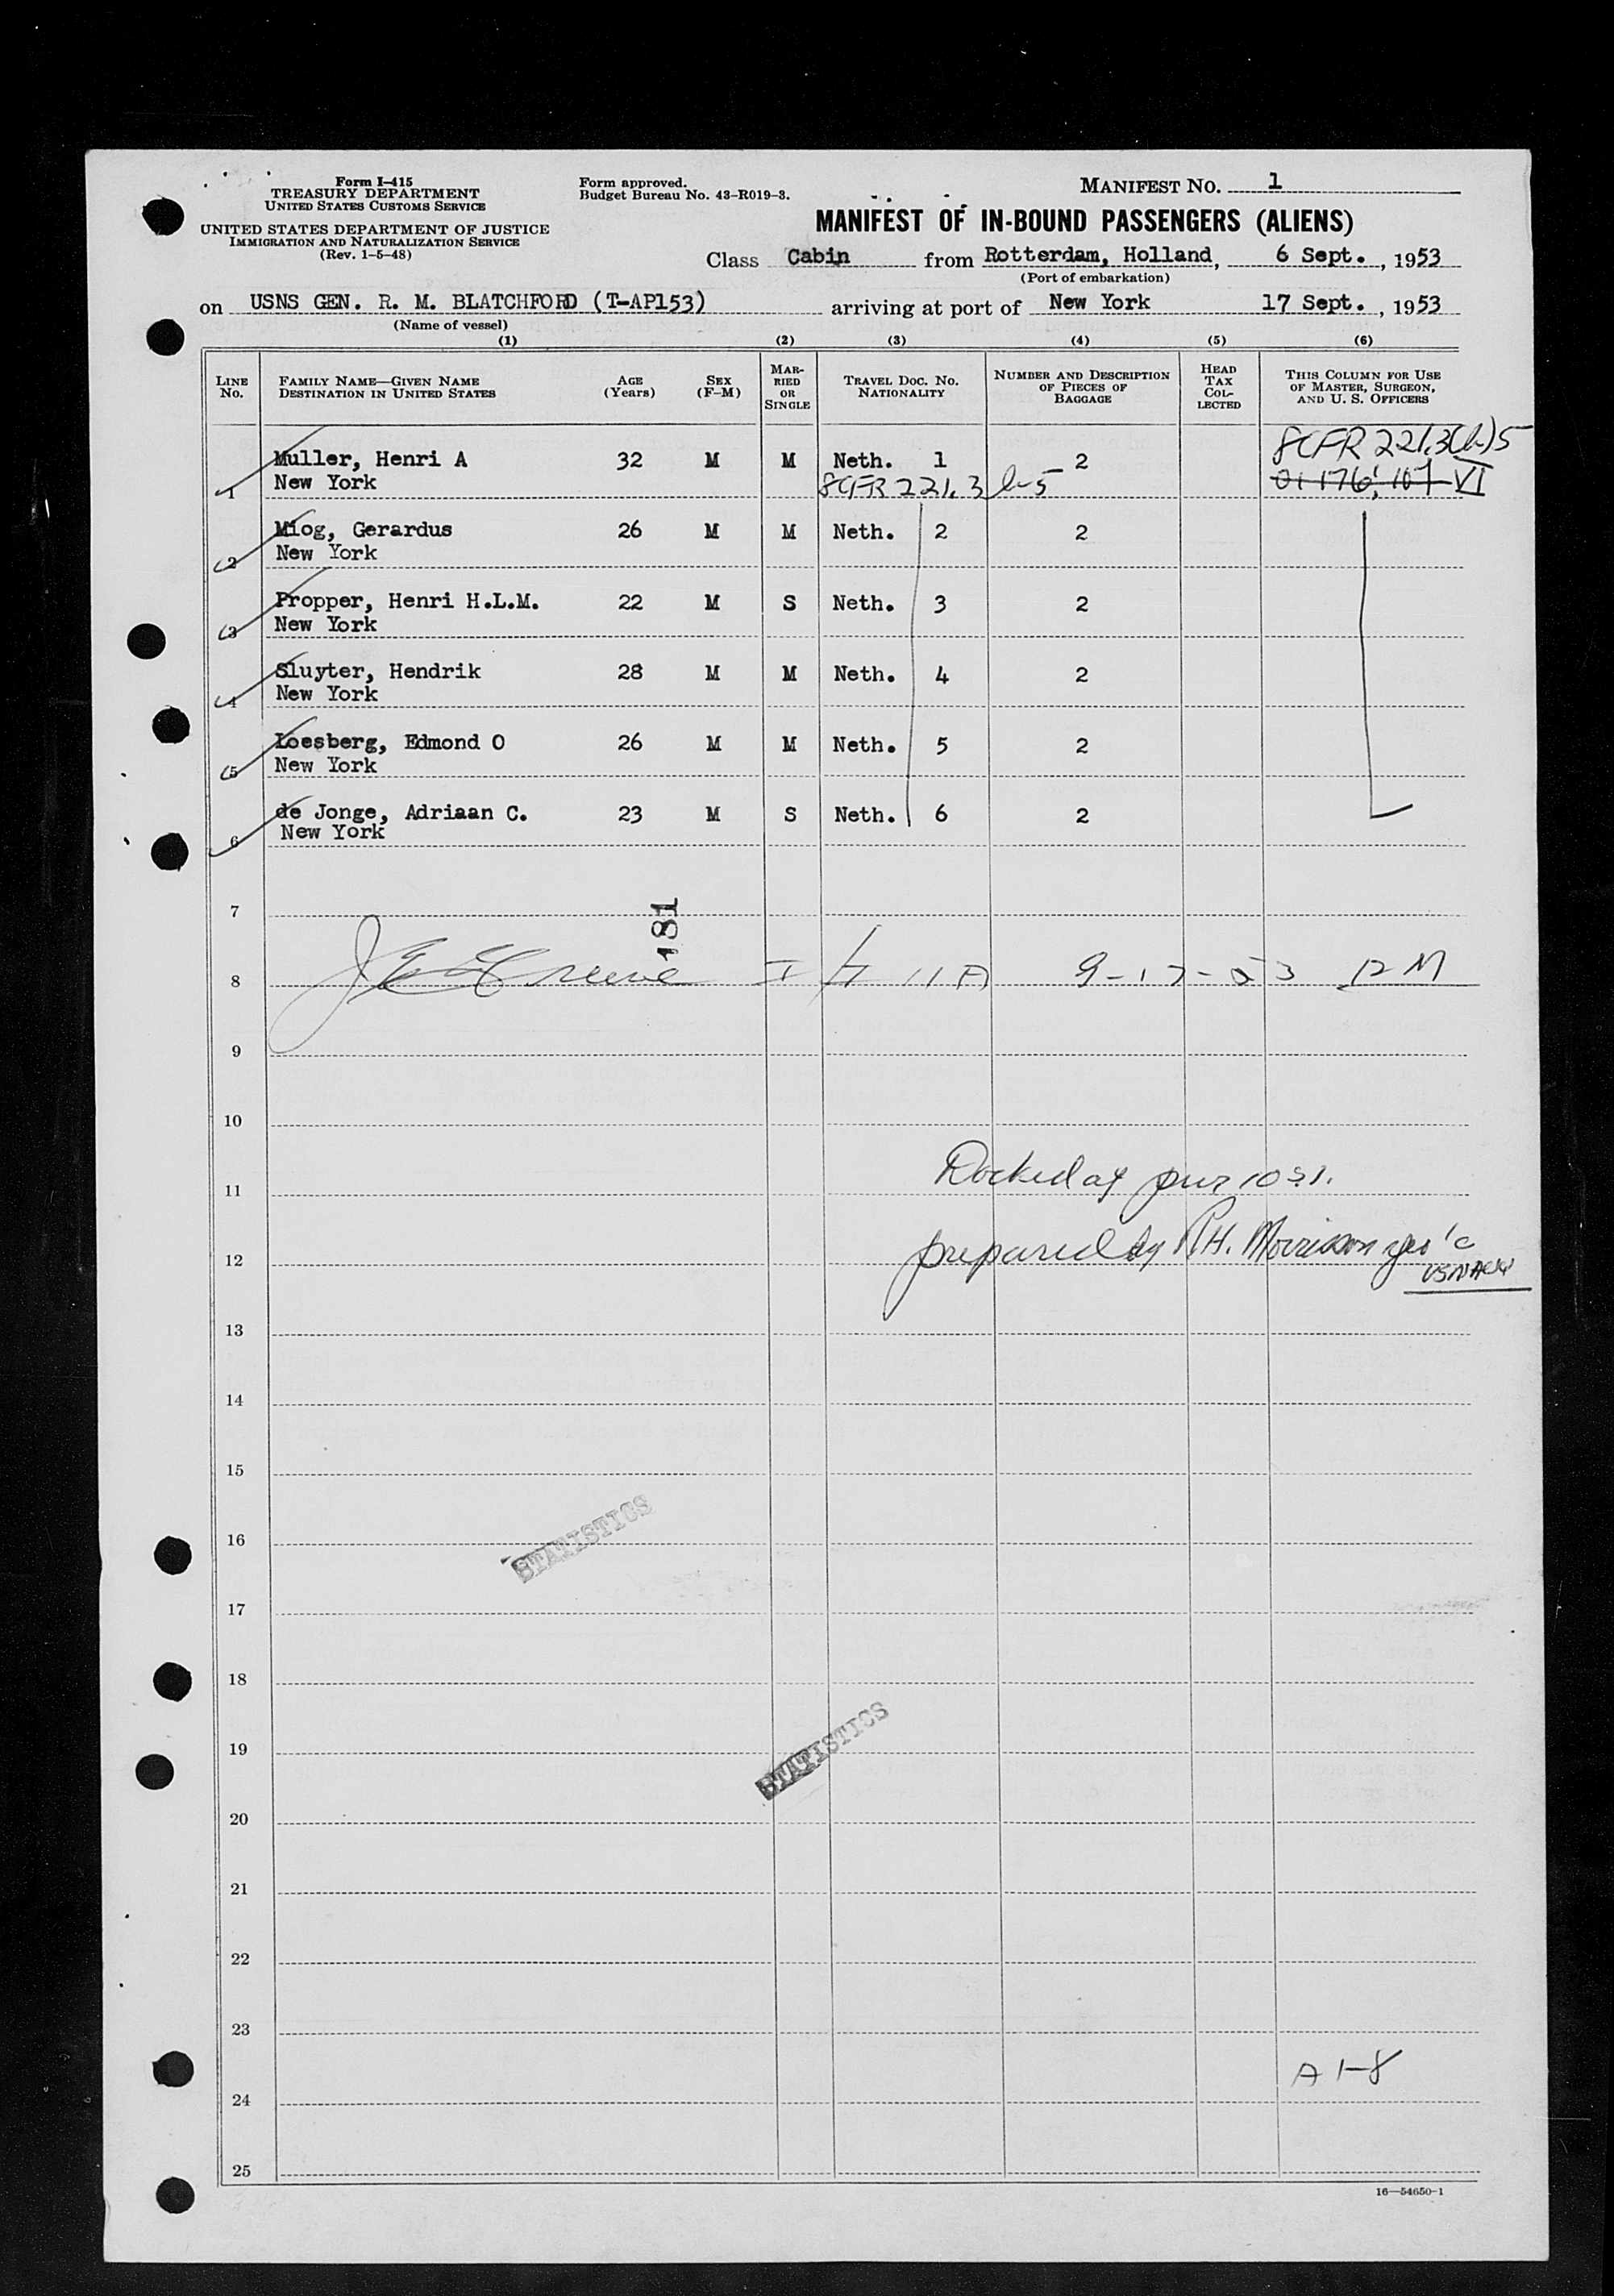 Form I-415
TREASURY DEPARTMENT
UNITED STATES CUSTOMS SERVICE
UNITED STATES DEPARTMENT OF JUSTICE
IMMIGRATION AND NATURALIZATION SERVICE
(Rev. 1-5-48)
Form approved.
Budget Bureau No. 43-R019-3.
MANIFEST NO. 1
MANIFEST OF IN-BOUND PASSENGERS (ALIENS)
Class Cabin from Rotterdam, Holland, 6 Sept., 1953
(Port of embarkation)
on USNS GEN. R. M. BLATCHFORD (T-AP153) arriving at port of New York 17 Sept., 1953
(Name of vessel)
(1) (2) (3) (4) (5) (6)
LINE NO.
FAMILY NAME—GIVEN NAME
DESTINATION IN UNITED STATES
AGE (Years)
SEX (F-M)
MARRIED OR SINGLE
TRAVEL DOC. NO. NATIONALITY
NUMBER AND DESCRIPTION OF PIECES OF BAGGAGE
HEAD TAX COLLECTED
THIS COLUMN FOR USE OF MASTER, SURGEON, AND U. S. OFFICERS
1 Muller, Henri A 32 M M Neth. 1 2 8CFR 221.3(b)5
New York 8CFR 221.3 b-5 VI
2 Miog, Gerardus 26 M M Neth. 2 2
New York
3 Propper, Henri H.L.M. 22 M S Neth. 3 2
New York
4 Sluyter, Hendrik 28 M M Neth. 4 2
New York
5 Loesberg, Edmond O 26 M M Neth. 5 2
New York
6 de Jonge, Adriaan C. 23 M S Neth. 6 2
New York
7
181
8 11A 9-17-53 12 M
9
10
11 Docked at pier 10 S.I.
12 prepared by R.H. Morrison
13
14
15
16 STATISTICS
17
18
19 STATISTICS
20
21
22
23
A 1-8
24
25
16—54650-1